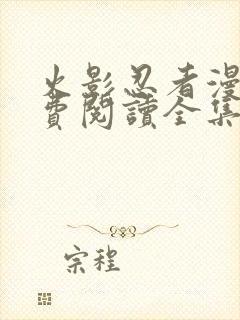 火影忍者漫
費閱讀全集
宗程